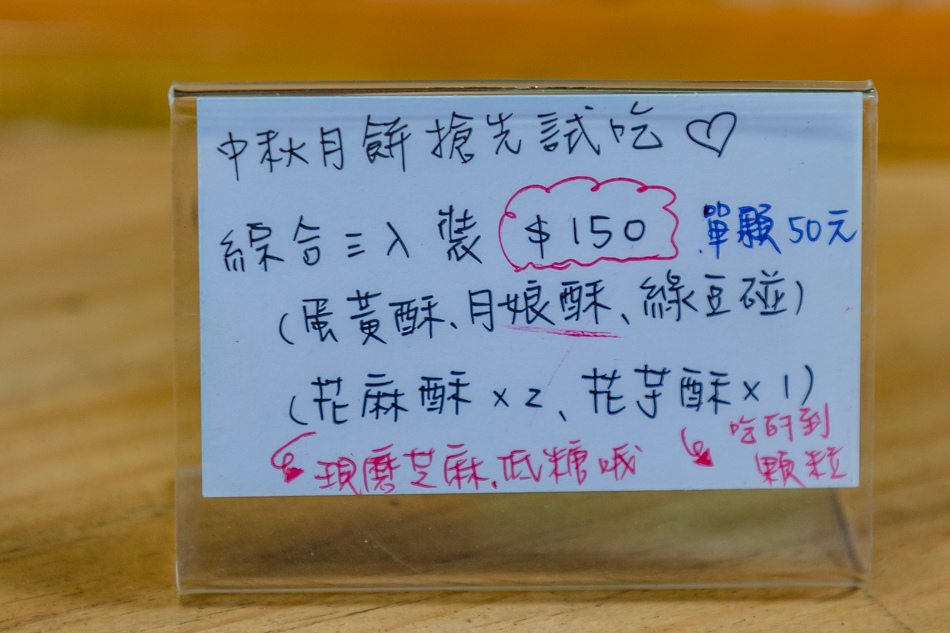 中秋月餅搶先試吃♡
綜合三入裝 $150 單顆50元
(蛋黃酥、月娘酥、綠豆碰)
(花麻酥x2、花芋酥x1)
現磨芝麻.低糖哦
吃的到
顆粒